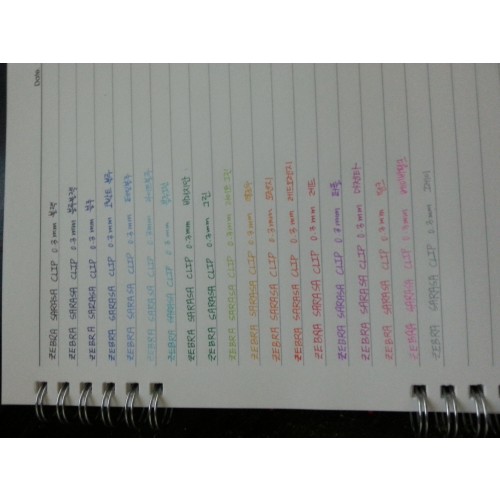 Date.
ZEBRA SARASA CLIP 0.3mm 블랙
ZEBRA SARASA CLIP 0.3mm 블루블랙
ZEBRA SARASA CLIP 0.3mm 블루
ZEBRA SARASA CLIP 0.3mm 블루
ZEBRA SARASA CLIP 0.3mm 페일블루
ZEBRA SARASA CLIP 0.3mm
ZEBRA SARASA CLIP 0.3mm
ZEBRA SARASA CLIP 0.3mm 비리디안
ZEBRA SARASA CLIP 0.3mm 그린
ZEBRA SARASA CLIP 0.3mm 그린
ZEBRA SARASA CLIP 0.3mm
ZEBRA SARASA CLIP 0.3mm 오렌지
ZEBRA SARASA CLIP 0.3mm 레드오렌지
ZEBRA SARASA CLIP 0.3mm 레드
ZEBRA SARASA CLIP 0.3mm 퍼플
ZEBRA SARASA CLIP 0.3mm 마젠타
ZEBRA SARASA CLIP 0.3mm 핑크
ZEBRA SARASA CLIP 0.3mm 라이트핑크
ZEBRA SARASA CLIP 0.3mm 그레이